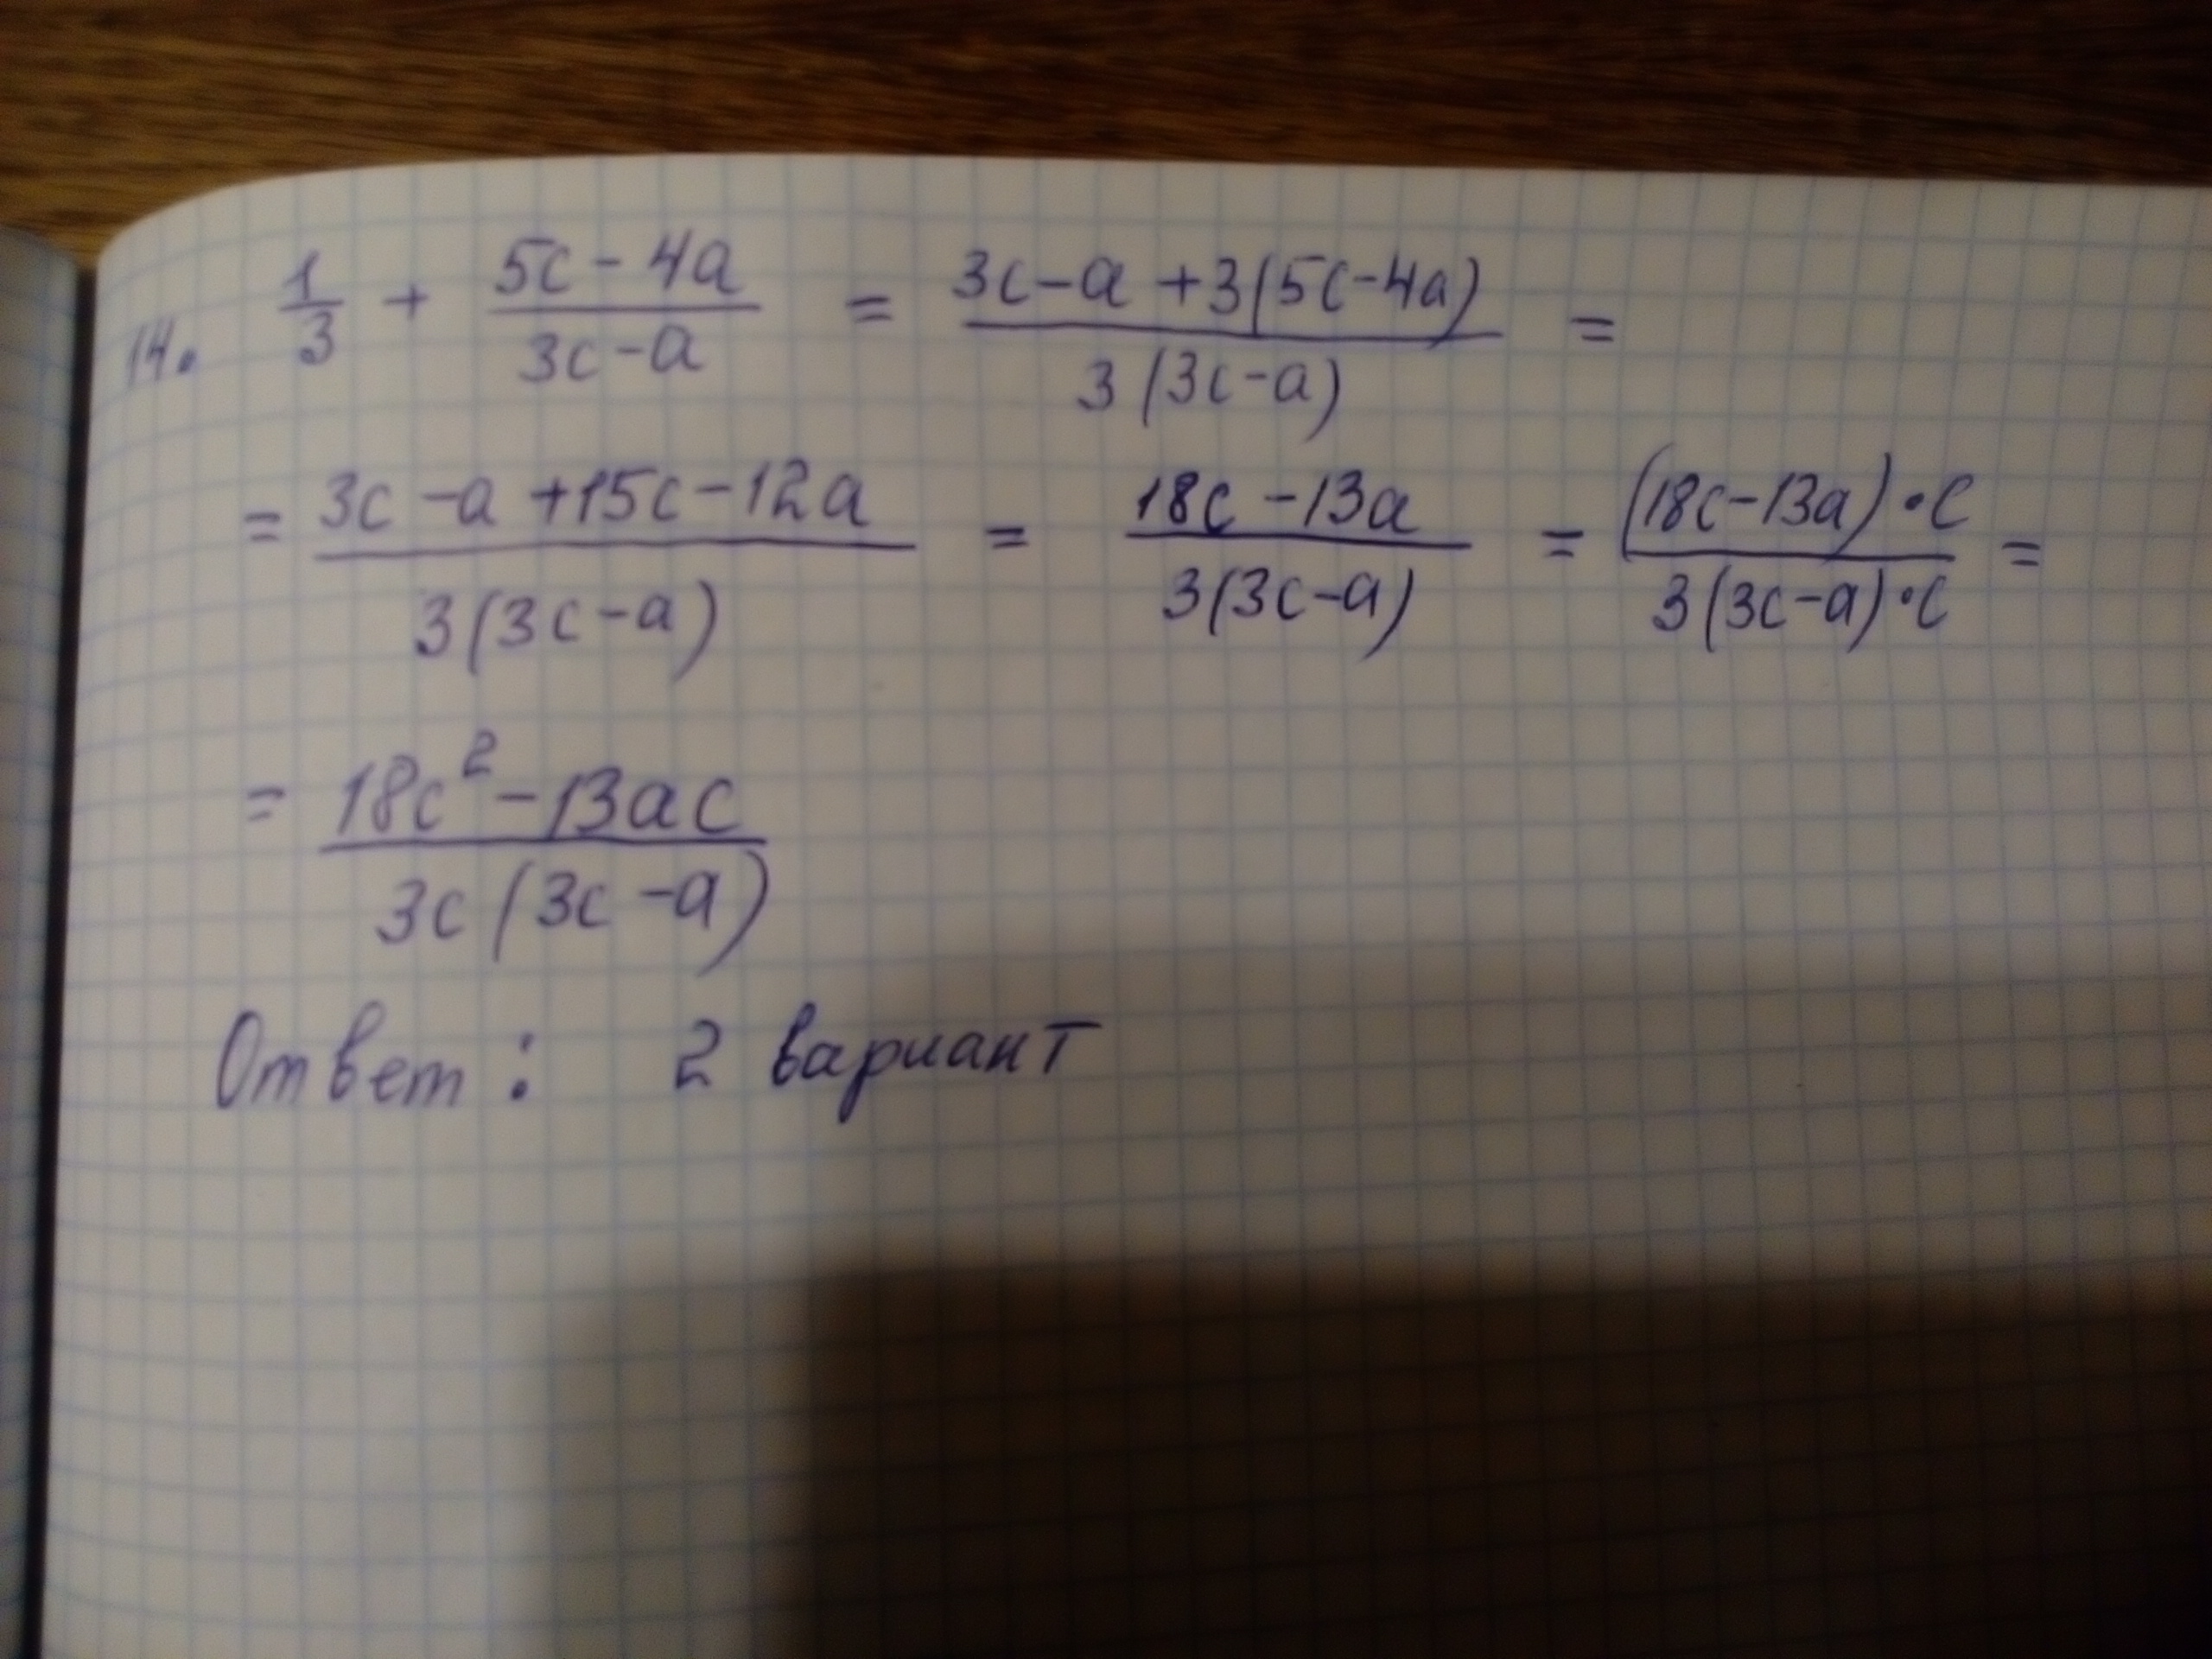 14. 1/3 + (5c-4a)/(3c-a) = (3c-a+3(5c-4a))/(3(3c-a)) =
= (3c-a+15c-12a)/(3(3c-a)) = (18c-13a)/(3(3c-a)) = ((18c-13a)·c)/(3(3c-a)·c) =
= (18c²-13ac)/(3c(3c-a))
Ответ: 2 вариант